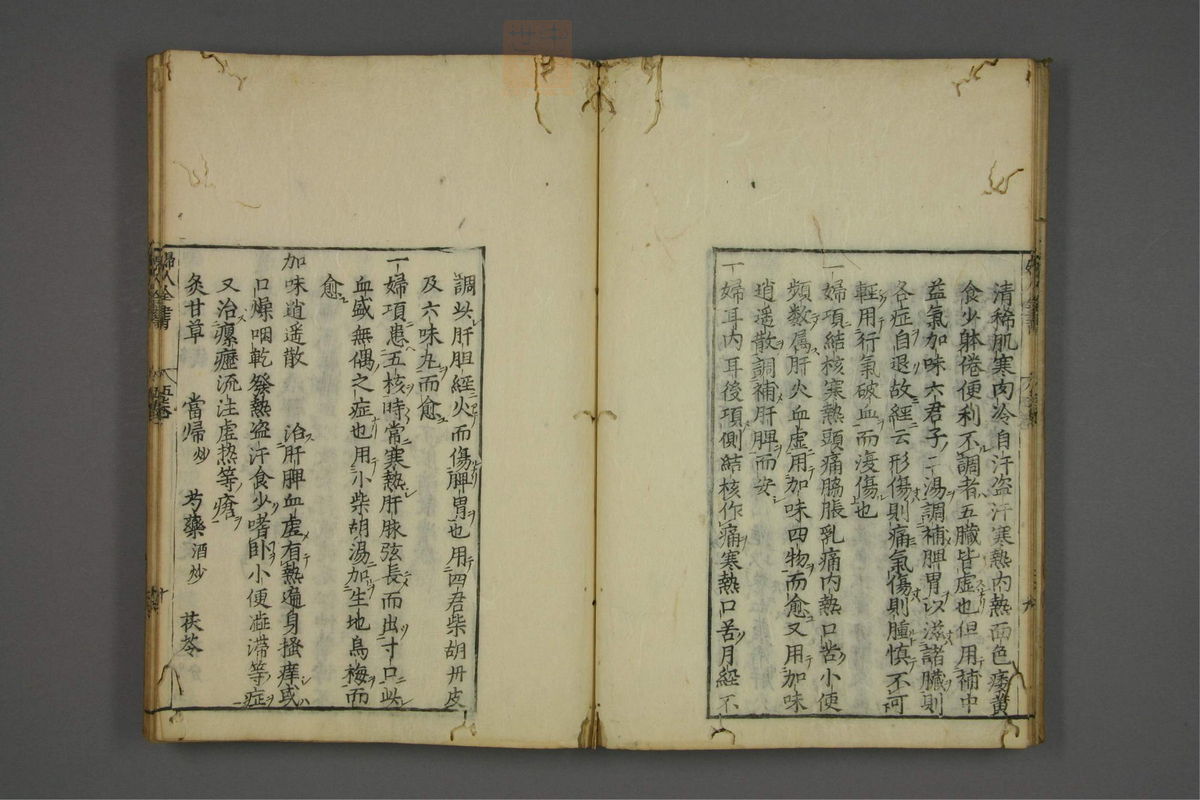 清稀肌寒肉冷自汗盗汗寒熱內熱面色痿黄
食少躰倦便利不調者五臟皆虚也但用補中
益氣加味六君子二湯調補脾胃以滋諸臟則
各症自退故經云形傷則痛氣傷則腫慎不可
輕用行氣破血而復傷也
一婦項結核寒熱頭痛脇脹乳痛內熱口苦小便
頻數属肝火血虚用加味四物而愈又用加味
逍遥散調補肝脾而安
一婦耳內耳後項側結核作痛寒熱口苦月經不
調此肝胆經火而傷脾胃也用四君柴胡丹皮
及六味丸而愈
一婦項患五核時常寒熱肝脉弦長而出寸口此
血盛無偶之症也用小柴胡湯加生地烏梅而
愈
加味逍遥散 治肝脾血虚有熱遍身搔痒或
口燥咽乾發熱盗汗食少嗜卧小便澁滞等症
又治瘰癧流注虚热等瘡
炙甘草 當歸炒 芍藥酒炒 茯苓